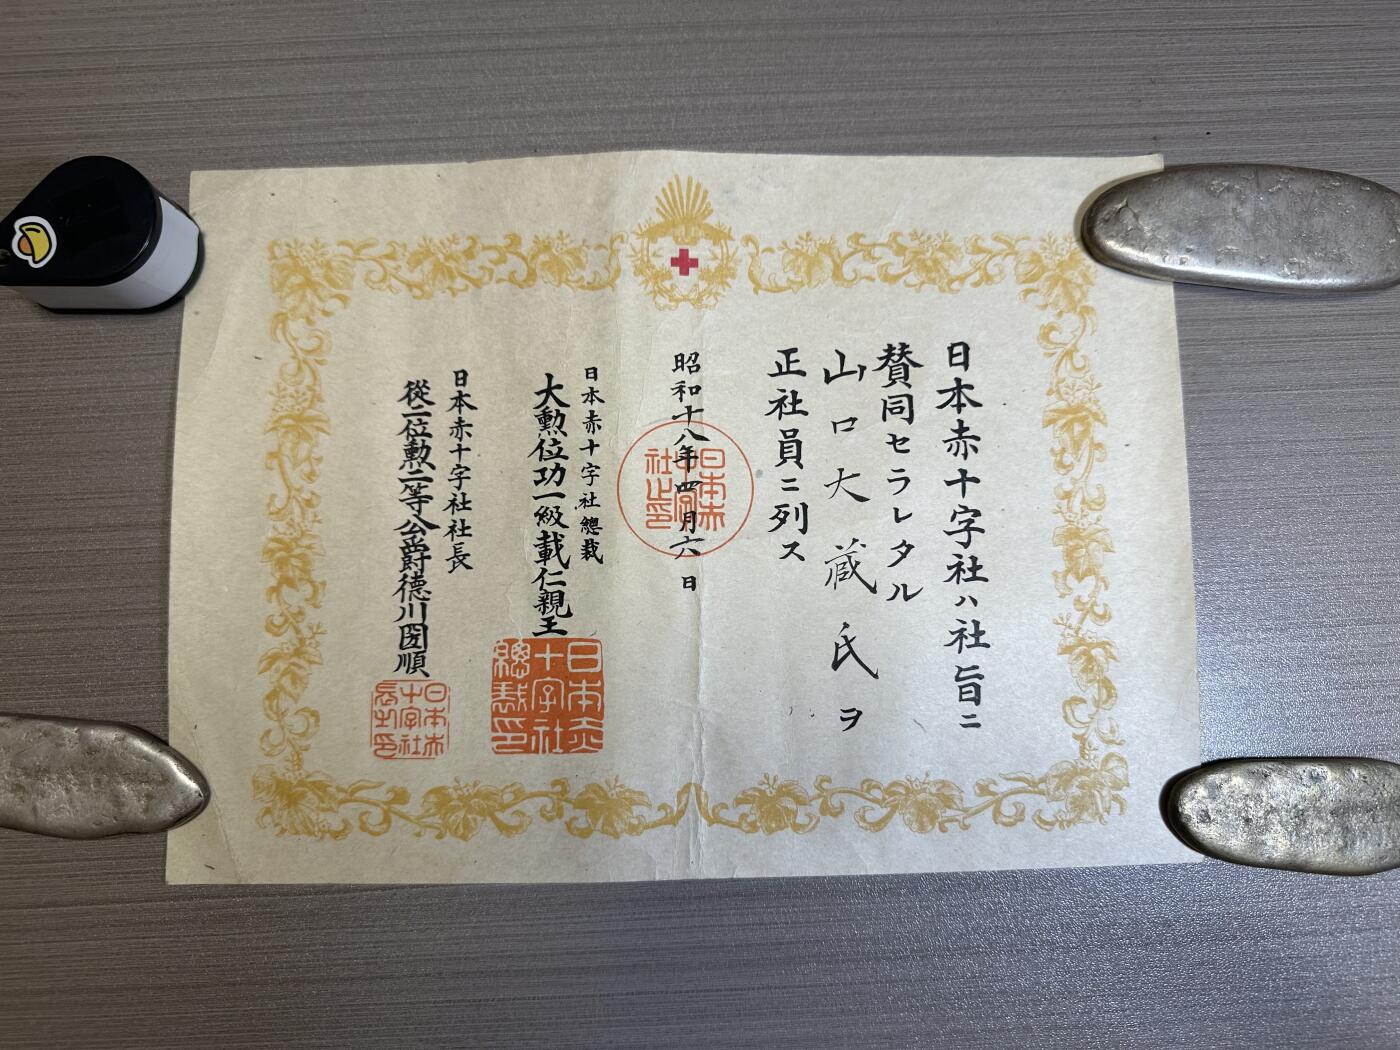 日本赤十字社ハ社旨ニ
賛同セラレタル
山口大蔵氏ヲ
正社員ニ列ス
昭和十八年四月六日
日本赤十字社之印
日本赤十字社總裁
大勲位功一級載仁親王
日本赤十字社總裁印
日本赤十字社社長
從二位勲二等公爵德川圀順
日本赤十字社長之印